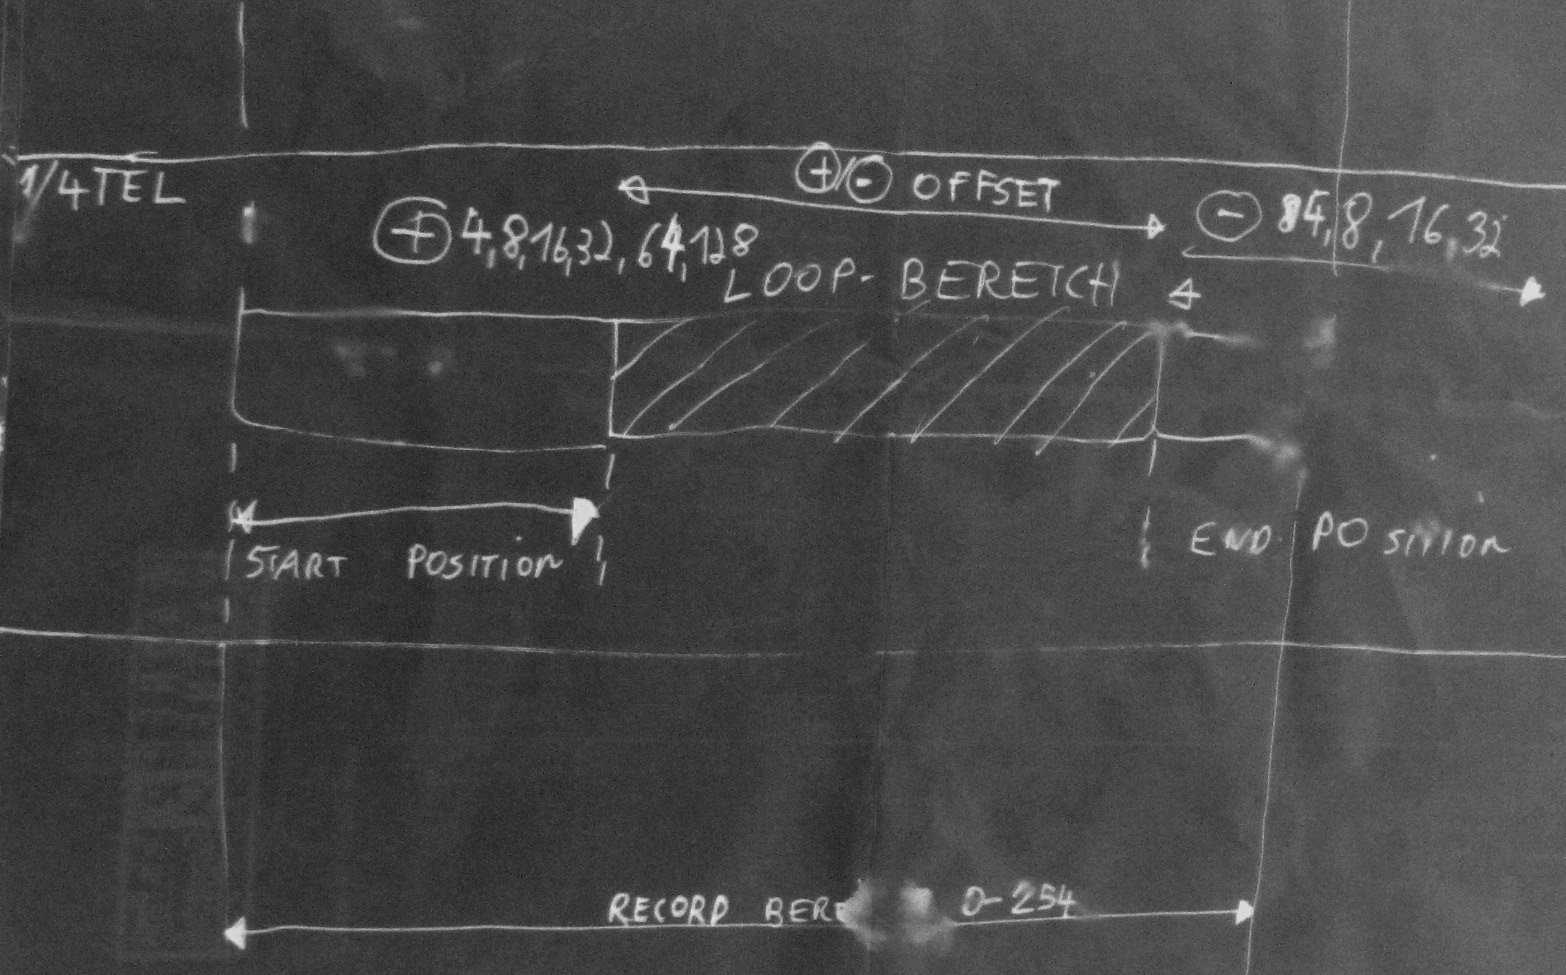 1/4TEL
+/- OFFSET
+ 4,8,16,32,64,128
- 4,8,16,32
LOOP-BEREICH
START POSITION
END POSITION
RECORD 0-254